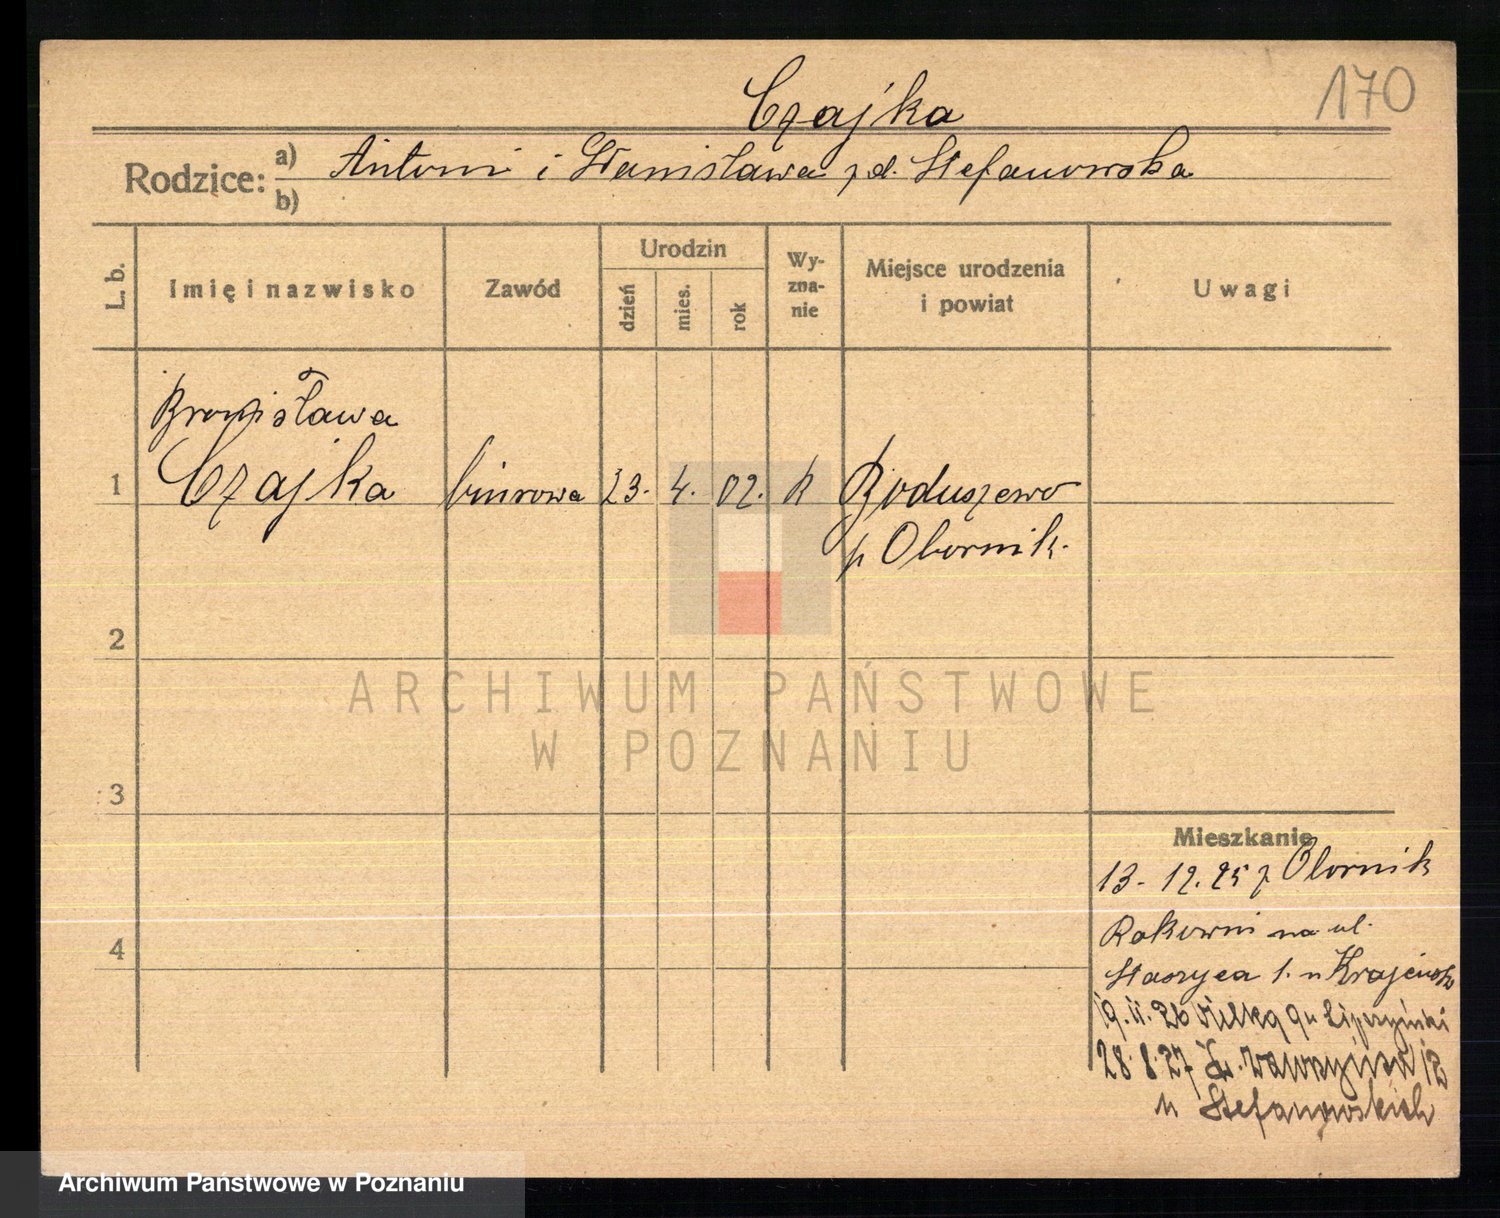 170
Czajka
Rodzice: a) Antoni i Stanisława z d. Stefanowska
b)
L. b. Imię i nazwisko Zawód Urodzin dzień mies. rok Wyznanie Miejsce urodzenia i powiat Uwagi
Bronisława
1 Czajka biurowa 23. 4. 02. R Boduszewo
p Obornik.
2
ARCHIWUM PAŃSTWOWE
W POZNANIU
3
Mieszkanie
13. 12. 25 z Obornik
na ul.
Staszyca 1. u
4
19. 11. 26 Wielką 9 u
28. 8. 27
u Stefanowskich
Archiwum Państwowe w Poznaniu